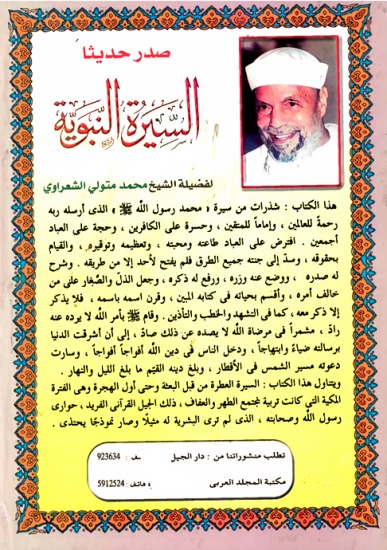 صدر حديثا
السيرة النبوية
لفضيلة الشيخ محمد متولي الشعراوي
هذا الكتاب : شذرات من سيرة « محمد رسول الله ﷺ » الذى أرسله ربه
رحمة للعالمين ، وإماماً للمتقين ، وحسرة على الكافرين ، وحجة على العباد
أجمعين . افترض على العباد طاعته ومحبته ، وتعظيمه وتوقيره ، والقيام
بحقوقه ، وسدّ إلى جنته جميع الطرق فلم يفتح لأحد إلا من طريقه . وشرح
له صدره ، ووضع عنه وزره ، ورفع له ذكره ، وجعل الذلّ والصَّغار على من
خالف أمره ، وأقسم بحياته فى كتابه المبين ، وقرن اسمه باسمه ، فلا يذكر
إلا ذكر معه ، كما فى التشهد والخطب والتأذين . وقام ﷺ بأمر الله لا يرده عنه
رادّ ، مشمراً فى مرضاة الله لا يصده عن ذلك صادّ ، إلى أن أشرقت الدنيا
برسالته ضياءً وابتهاجاً ، ودخل الناس فى دين الله أفواجاً أفواجاً ، وسارت
دعوته مسير الشمس فى الأقطار ، وبلغ دينه القيّم ما بلغ الليل والنهار .
ويتناول هذا الكتاب : السيرة العطرة من قبل البعثة وحتى أول الهجرة وهى الفترة
المكية التى كانت تربية لمجتمع الطهر والعفاف ، ذلك الجيل القرآنى الفريد ، حوارى
رسول الله وصحابته ، الذى لم ترى البشرية له مثيلًا وصار نموذجًا يحتذى .
تطلب منشوراتنا من : دار الجيل : 923634
مكتبة المجلد العربى هاتف : 5912524